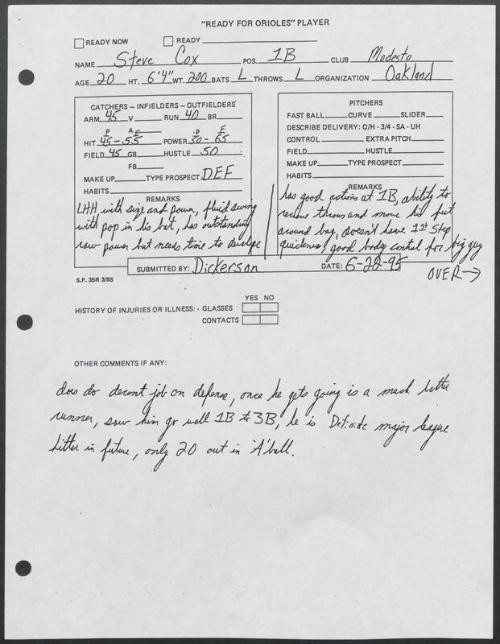 "READY FOR ORIOLES" PLAYER
READY NOW READY
NAME Steve Cox POS. 1B CLUB Modesto
AGE 20 HT. 6'4" WT. 200 BATS L THROWS L ORGANIZATION Oakland
CATCHERS – INFIELDERS – OUTFIELDERS
ARM 45 V RUN 40 BR
P AE P F
HIT 45-55 POWER 30-65
FIELD 45 GB HUSTLE 50
FB
MAKE UP TYPE PROSPECT DEF
HABITS
REMARKS
LHH with size and power, fluid swing
with pop in his bat, has outstanding
raw power but needs time to develope
PITCHERS
FAST BALL CURVE SLIDER
DESCRIBE DELIVERY: O/H - 3/4 - SA - UH
CONTROL EXTRA PITCH
FIELD HUSTLE
MAKE UP TYPE PROSPECT
HABITS
REMARKS
has good actions at 1B, ability to
receive throws and move his feet
around bag, doesn't have 1st step
quickness, good body control for big guy
SUBMITTED BY: Dickerson DATE: 6-22-95
OVER →
S.F. 35R 3/85
YES NO
HISTORY OF INJURIES OR ILLNESS: - GLASSES
CONTACTS
OTHER COMMENTS IF ANY:
does do decent job on defense, once he gets going is a much better
runner, saw him go well 1B to 3B, he is Definite major league
hitter in future, only 20 out in 'A' ball.